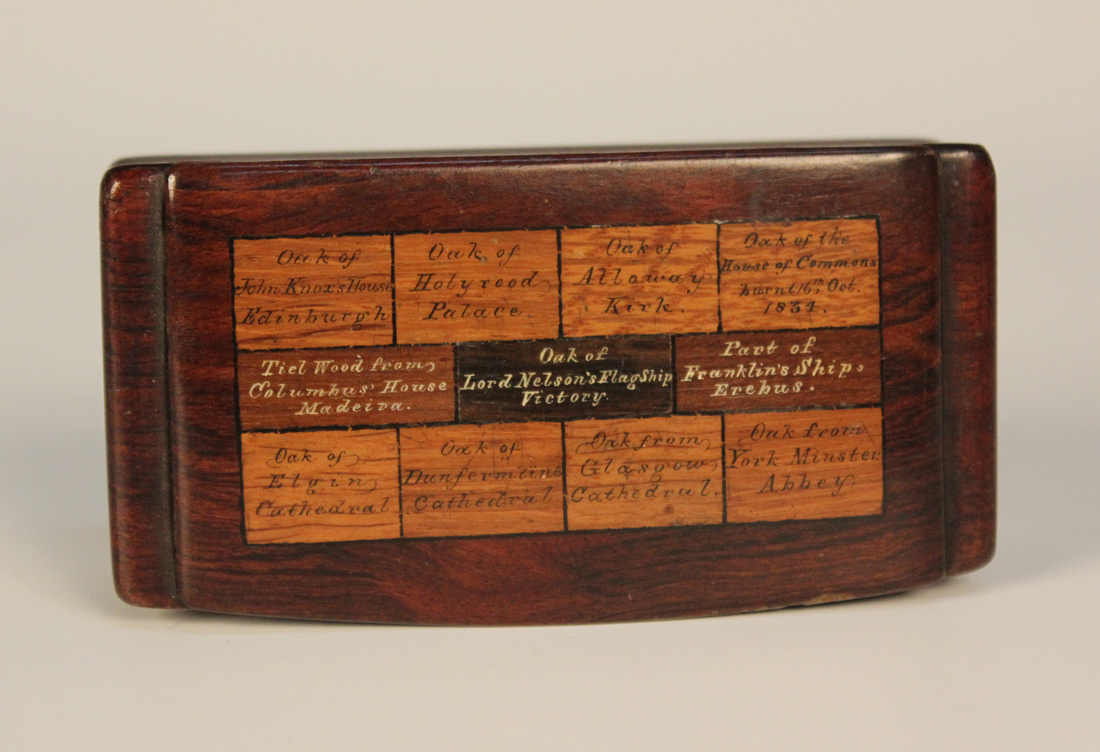 Oak of
John Knox's House
Edinburgh
Oak of
Holyrood
Palace.
Oak of
Alloway
Kirk.
Oak of the
House of Commons
burnt 16th Oct.
1834.
Tiel Wood from
Columbus' House
Madeira.
Oak of
Lord Nelson's Flag Ship
Victory.
Part of
Franklin's Ship,
Erebus.
Oak of
Elgin
Cathedral
Oak of
Dunfermline
Cathedral
Oak from
Glasgow
Cathedral.
Oak from
York Minster
Abbey.